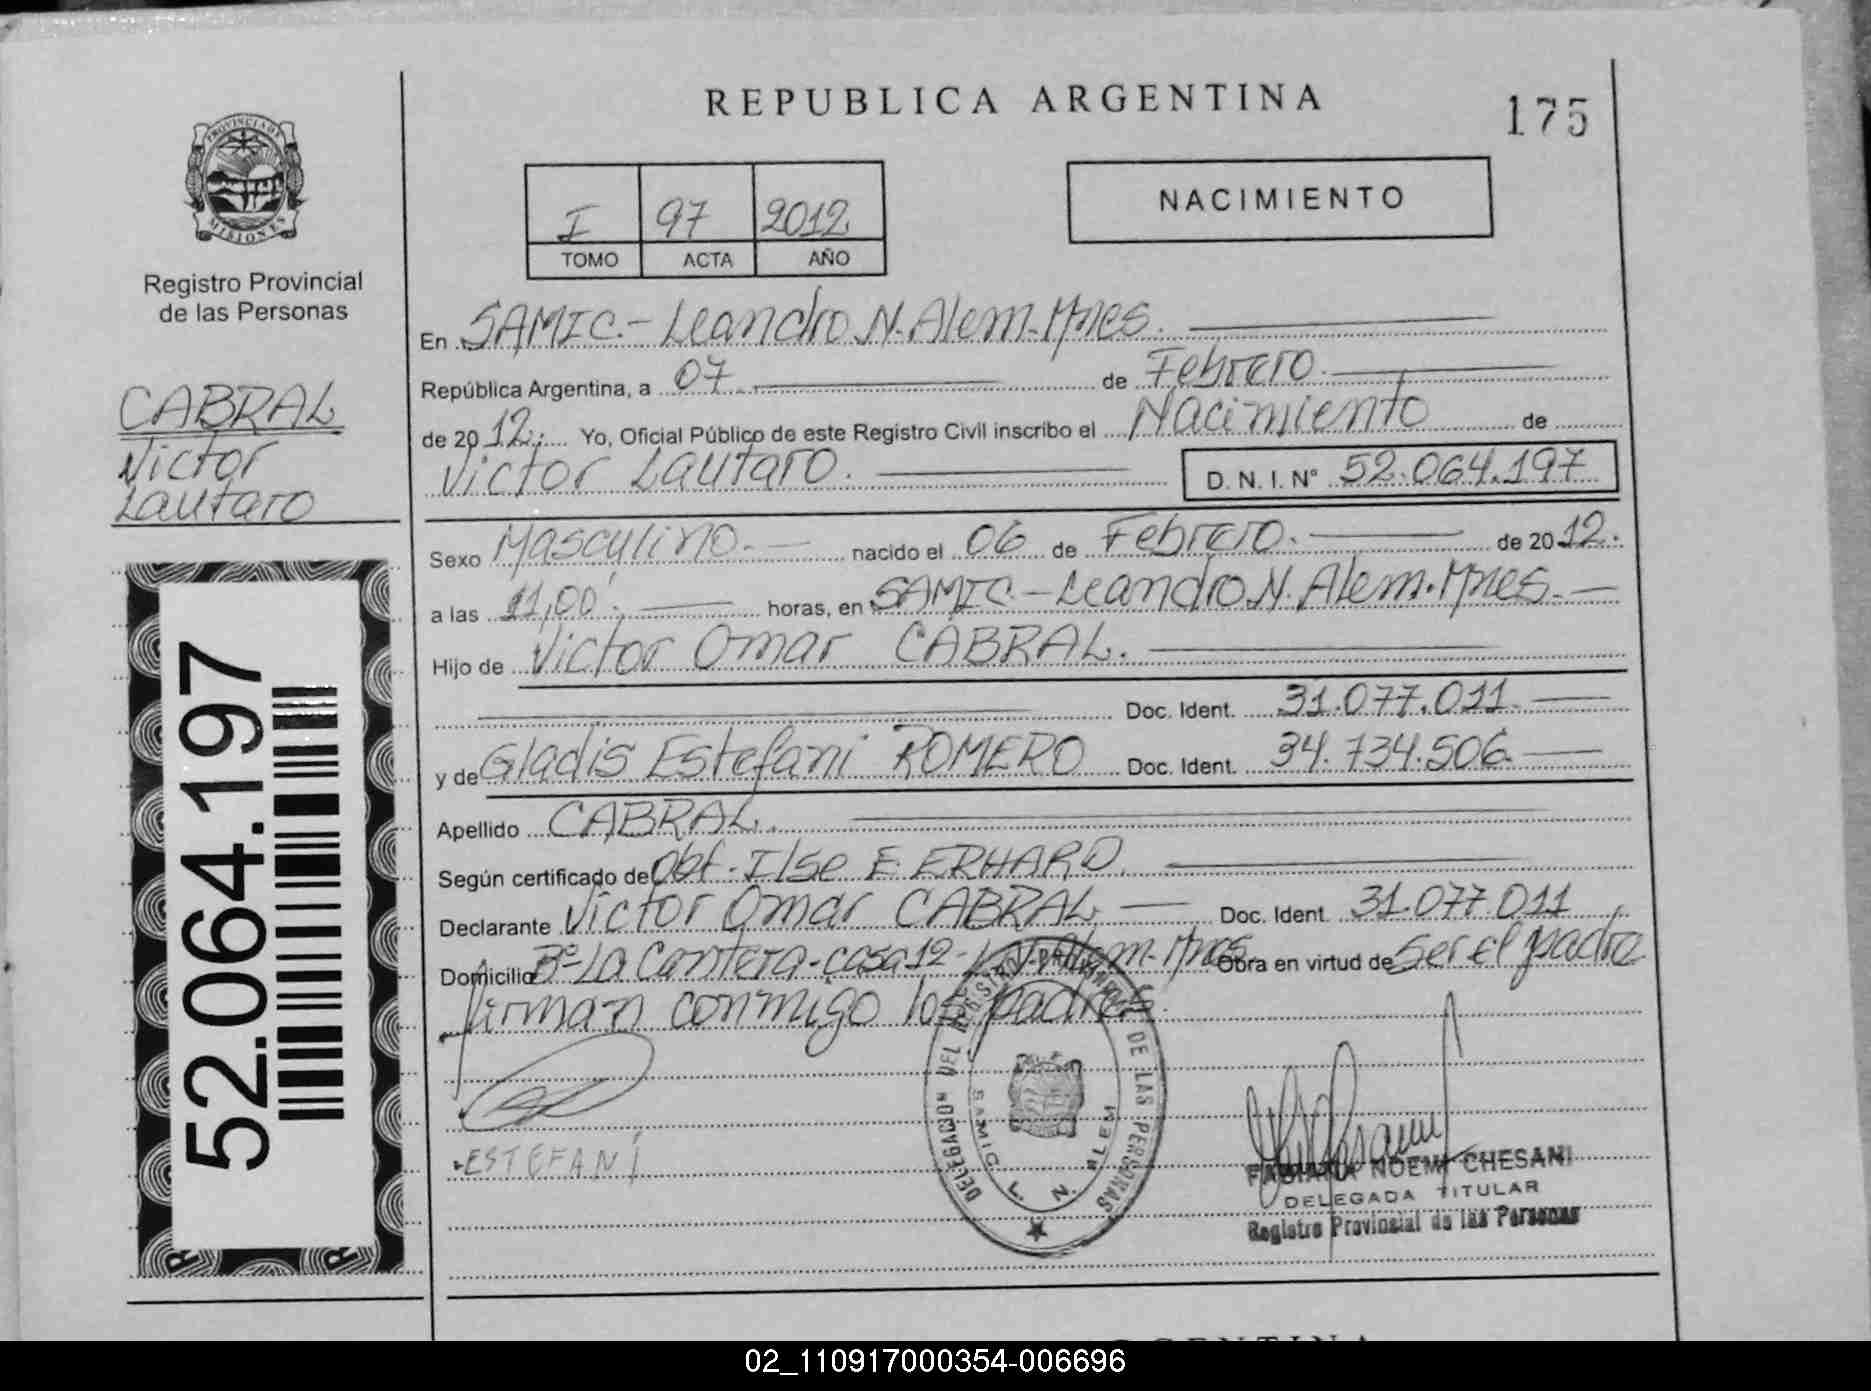 REPUBLICA ARGENTINA
175
PROVINCIA DE
MISIONES
Registro Provincial
de las Personas
I 97 2012
TOMO ACTA AÑO
NACIMIENTO
CABRAL
Victor
Lautaro
En SAMIC.- Leandro N. Alem. Mnes.
República Argentina, a 07 de Febrero.
de 2012. Yo, Oficial Público de este Registro Civil inscribo el Nacimiento de
Victor Lautaro. D. N. I. N° 52.064.197
Sexo Masculino. nacido el 06 de Febrero. de 2012.
a las 11,00'. horas, en SAMIC - Leandro N. Alem. Mnes.
Hijo de Victor Omar CABRAL.
Doc. Ident. 31.077.011.
y de Gladis Estefani ROMERO Doc. Ident. 34.734.506.
Apellido CABRAL.
Según certificado de Obt. Ilse E. ERHARD.
Declarante Victor Omar CABRAL Doc. Ident. 31.077.011
Domicilio B° La Cantera - casa 12 - L.N. Alem - Mnes. Obra en virtud de Ser el padre
firman conmigo los padres.
ESTEFANI
52.064.197
DELEGACION DEL REGISTRO PROVINCIAL DE LAS PERSONAS
SAMIC L. N. ALEM
FABIANA NOEMI CHESANI
DELEGADA TITULAR
Registro Provincial de las Personas
02_110917000354-006696